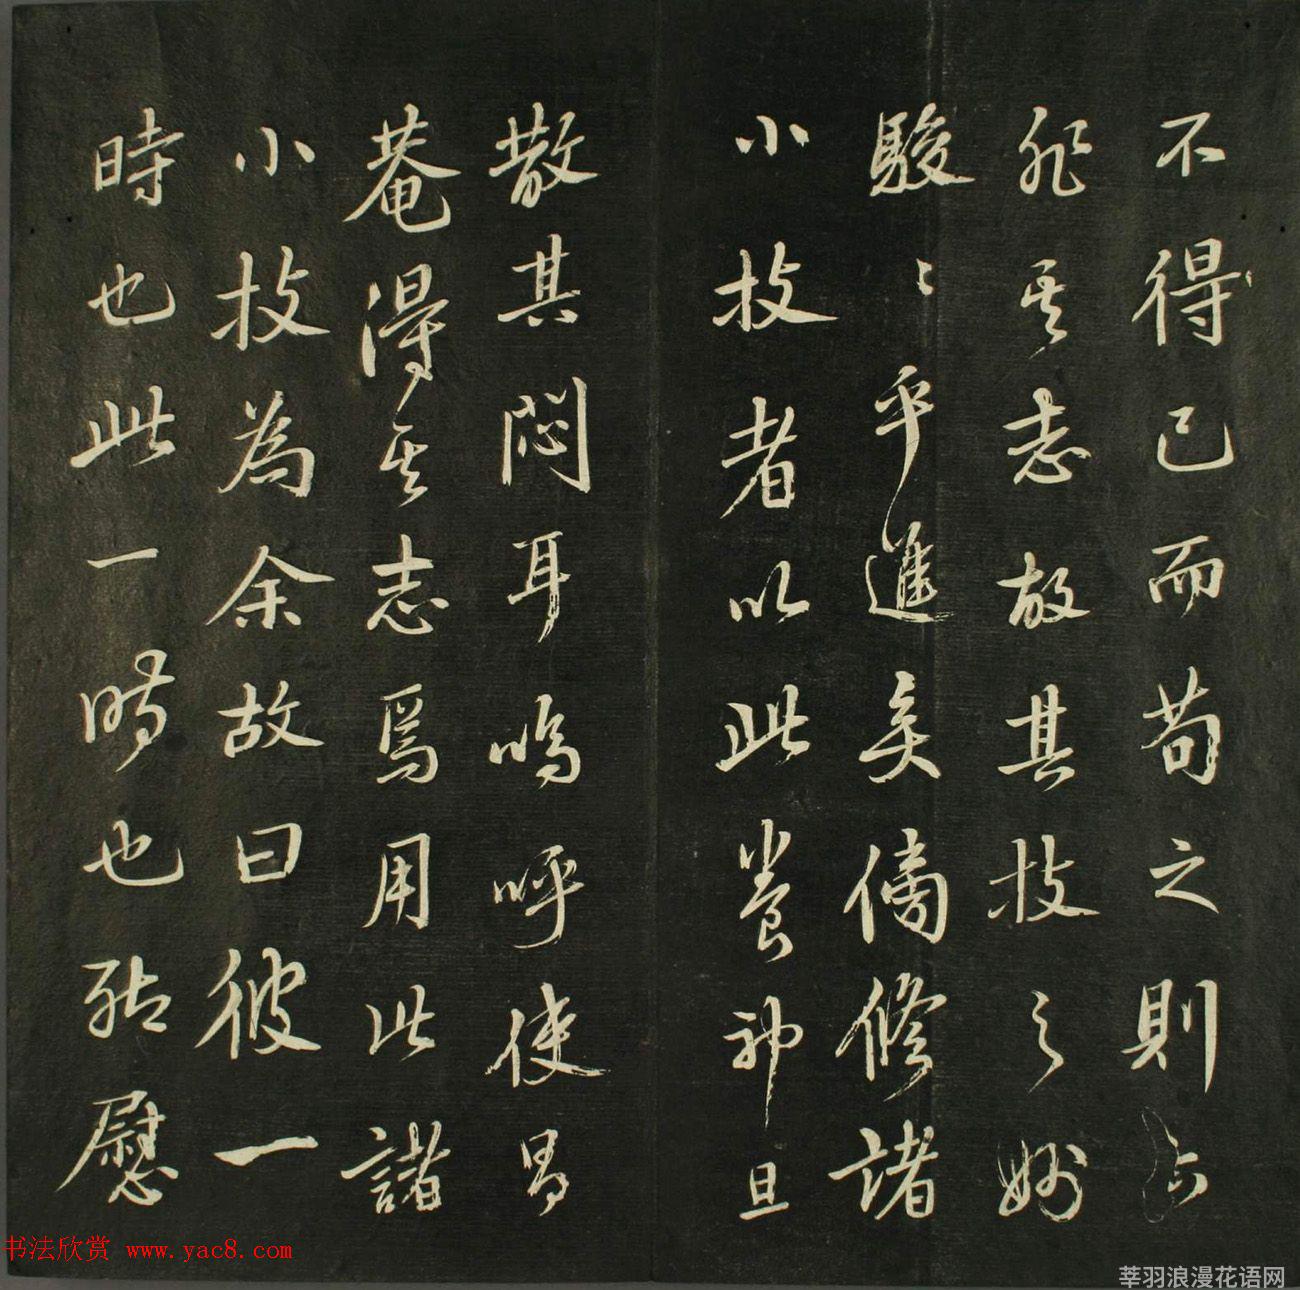 不得已而苟之則亦
非其志故其技之妙
駸〻乎進矣備修諸
小技者以此養神且
散其悶耳嗚呼使昌
菴得其志焉用此諸
小技為余故曰彼一
時也此一時也聊慰
书法欣赏 www.yac8.com
莘羽浪漫花语网